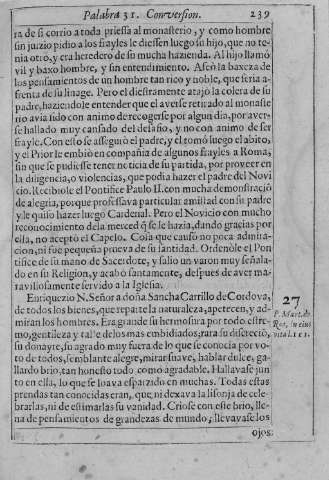 Palabra 31. Conversion. 239
ra de si corrio a toda priessa al monasterio, y como hombre
sin juyzio pidio a los frayles le diessen luego su hijo, que no te-
nia otro, y era heredero de su mucha hazienda. Al hijo llamó
vil y baxo hombre, y sin entendimiento. Afeò la baxeza de
los pensamientos de un hombre tan rico y noble, que seria a-
frenta de su linage. Pero el diestramente atajo la colera de su
padre, haziendole entender que el averse retirado al monaste
rio avia sido con animo de recogerse por algun dia, por aver-
se hallado muy cansado del desafio, y no con animo de ser
frayle. Con esto se asseguró el padre, y el tomó luego el abito,
y el Prior le embió en compañia de algunos frayles a Roma,
sin que se pudiesse tener noticia de su partida, por proveer en
la diligencia, o violencias, que podia hazer el padre del Novi
cio. Recibiole el Pontifice Paulo II. con mucha demonstració
de alegria, porque professava particular amistad con su padre
y le quiso hazer luego Cardenal. Pero el Novicio con mucho
reconocimiento de la merced q̃ se le hazia, dando gracias por
ella, no acepto el Capelo. Cosa que causó no poca admira-
cion, ni fue pequeña prueva de su santidad. Ordenóle el Pon
tifice de su mano de Sacerdote, y salio un varon muy señala-
do en su Religion, y acabó santamente, despues de aver ma-
ravillosamente servido a la Iglesia.
Enriquezio N. Señor a doña Sancha Carrillo de Cordova,
de todos los bienes, que reparte la naturaleza, apetecen, y ad-
miran los hombres. Era grande su hermosura por todo estre-
mo, gentileza y talle de los mas embidiados; rara su discreció,
su donayre, su agrado muy fuera de lo que se conocia por vo-
to de todos, semblante alegre, mirar suave, hablar dulce, ga-
llardo brio, tan honesto todo, como agradable. Hallavase jun
to en ella, lo que se loava esparzido en muchas. Todas estas
prendas tan conocidas eran, que ni dexava la lisonja de cele-
brarlas, ni de estimarlas su vanidad. Criose con este brio, lle-
na de pensamientos de grandezas de mundo; llevavase los
ojos
27
P. Mart. de
Roa, in eius
vita l. 1 c 1.